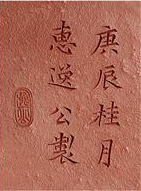 庚辰桂月
惠逸公製